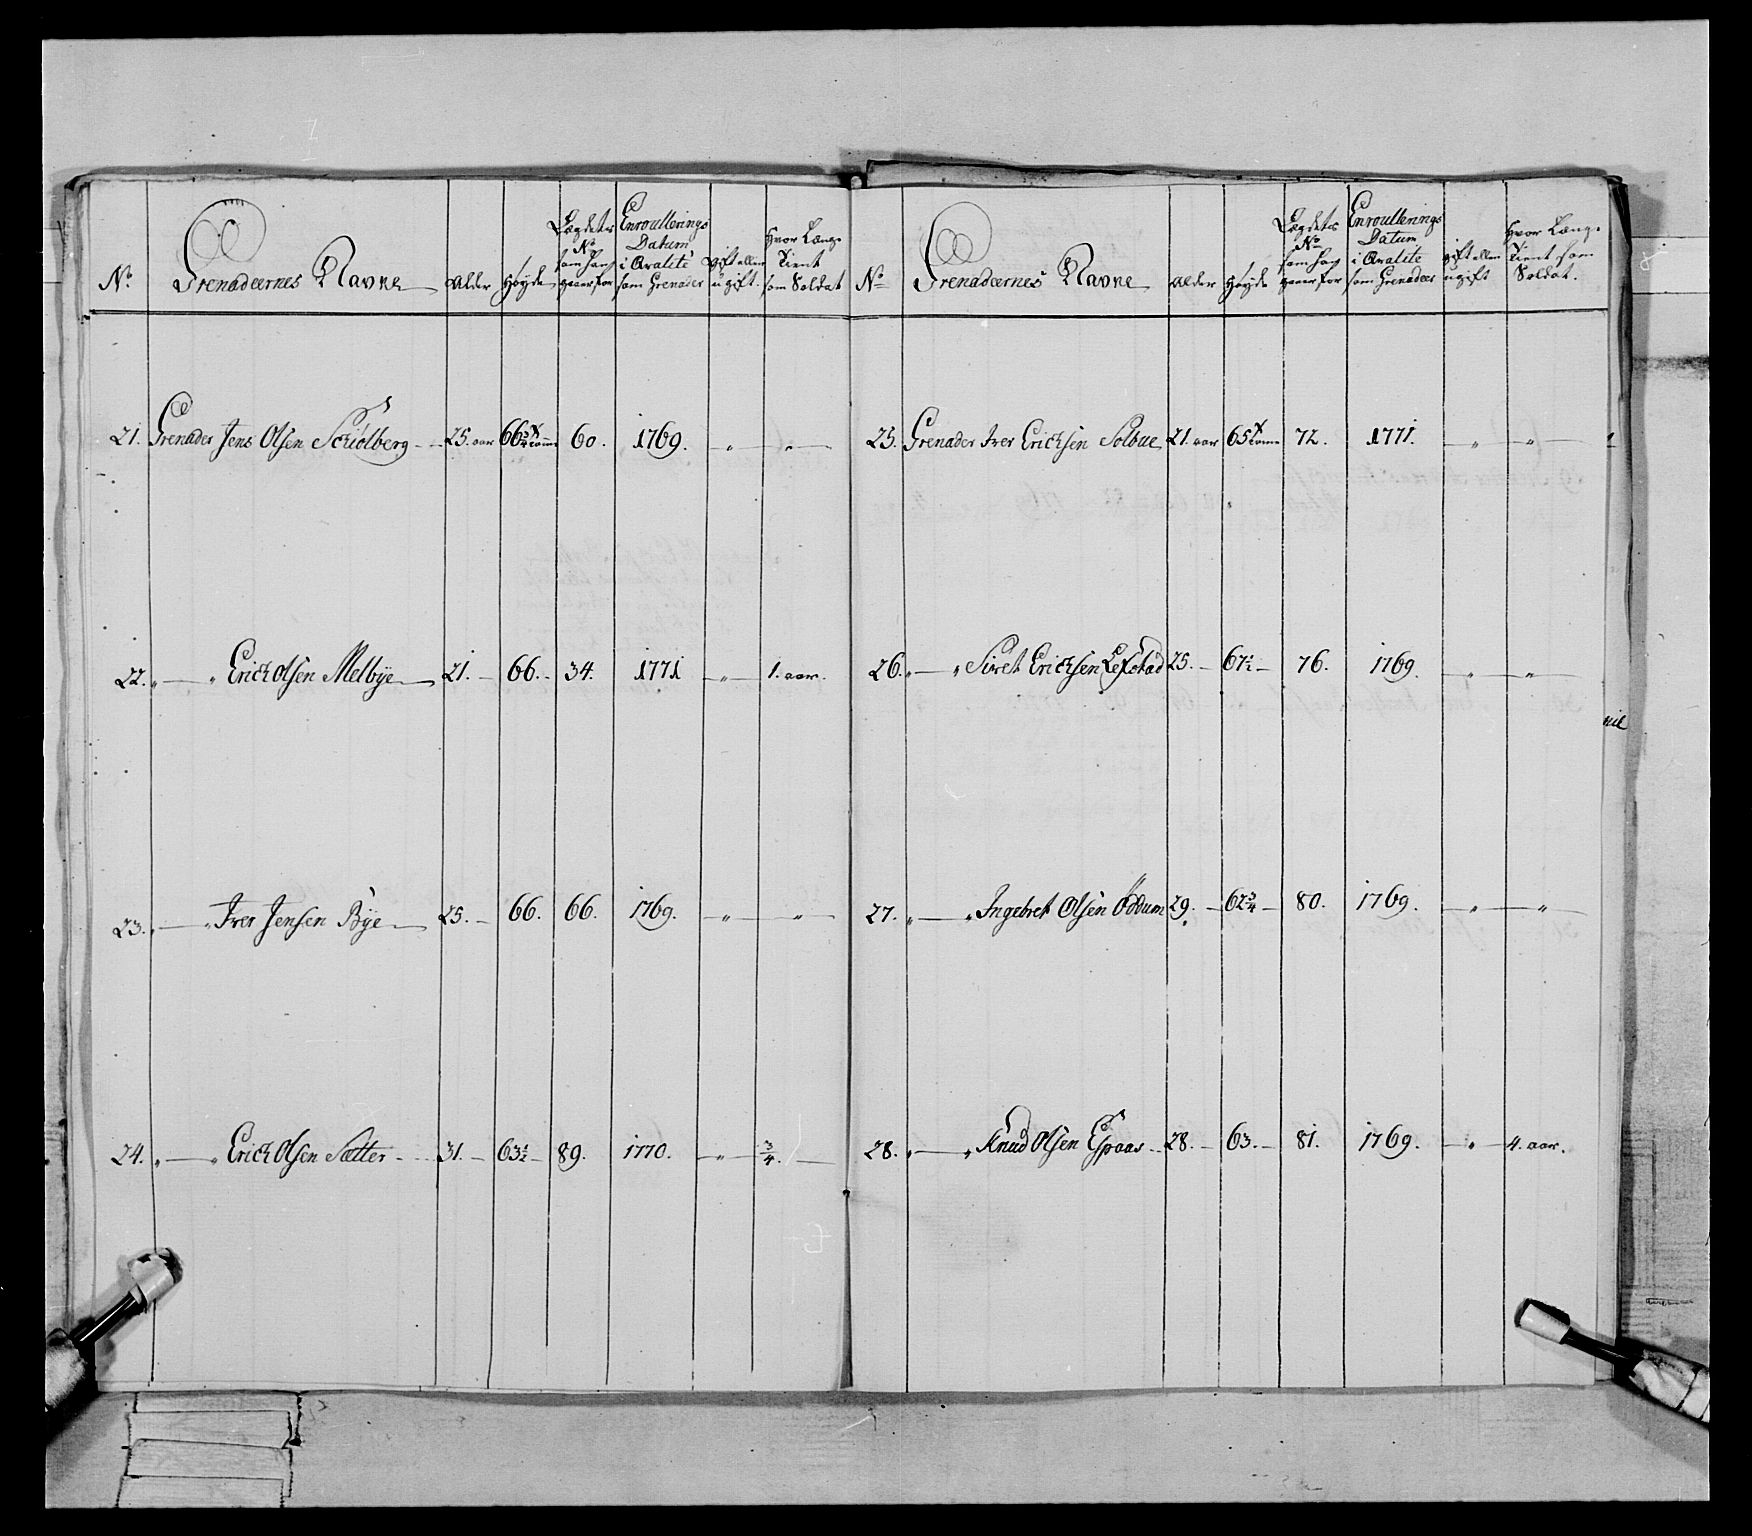 No. Grenadeernes Navne Alder Høyde Lægdets No. som han gaaer for Enroullerings Datum i Qvalité som Grenader gift eller ugift. Hvor Længe Tient som Soldat
21. Grenader Jens Olsen Schiölberg 25. aar 66 3/4 tomme 60. 1769. " "
22. " " Erich Olsen Melbye 21. 66. 34. 1771 " 1. aar.
23. " " Iver Jensen Bye 25. 66. 66. 1769. " "
24. " " Erich Olsen Sætter 31. 63 1/2 89. 1770. " 3/4.
No. Grenadeernes Navne Alder Høyde Lægdets No. som han gaaer for Enroullerings Datum i Qvalité som Grenadeer gift eller ugift Hvor Længe Tient som Soldat.
25. Grenader Iver Erichsen Solbue 21. aar 65 tomme 72. 1771. " "
26. " " Sivert Erichsen 25. 67 1/2 76. 1769. " "
27. " " Ingebret Olsen Oddum 29. 62 3/4 80. 1769. " "
28. " " Knud Olsen Espaas 28. 63. 81. 1769. " 4. aar.